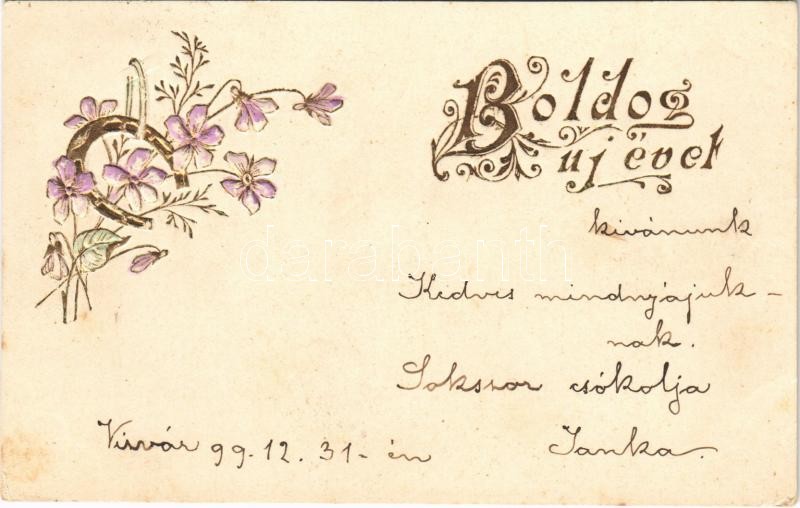 Boldog
uj évet
kivánunk
Kedves mindnyájuk-
nak.
Sokszor csókolja
Janka.
Visvár 99.12. 31-én
darabanth